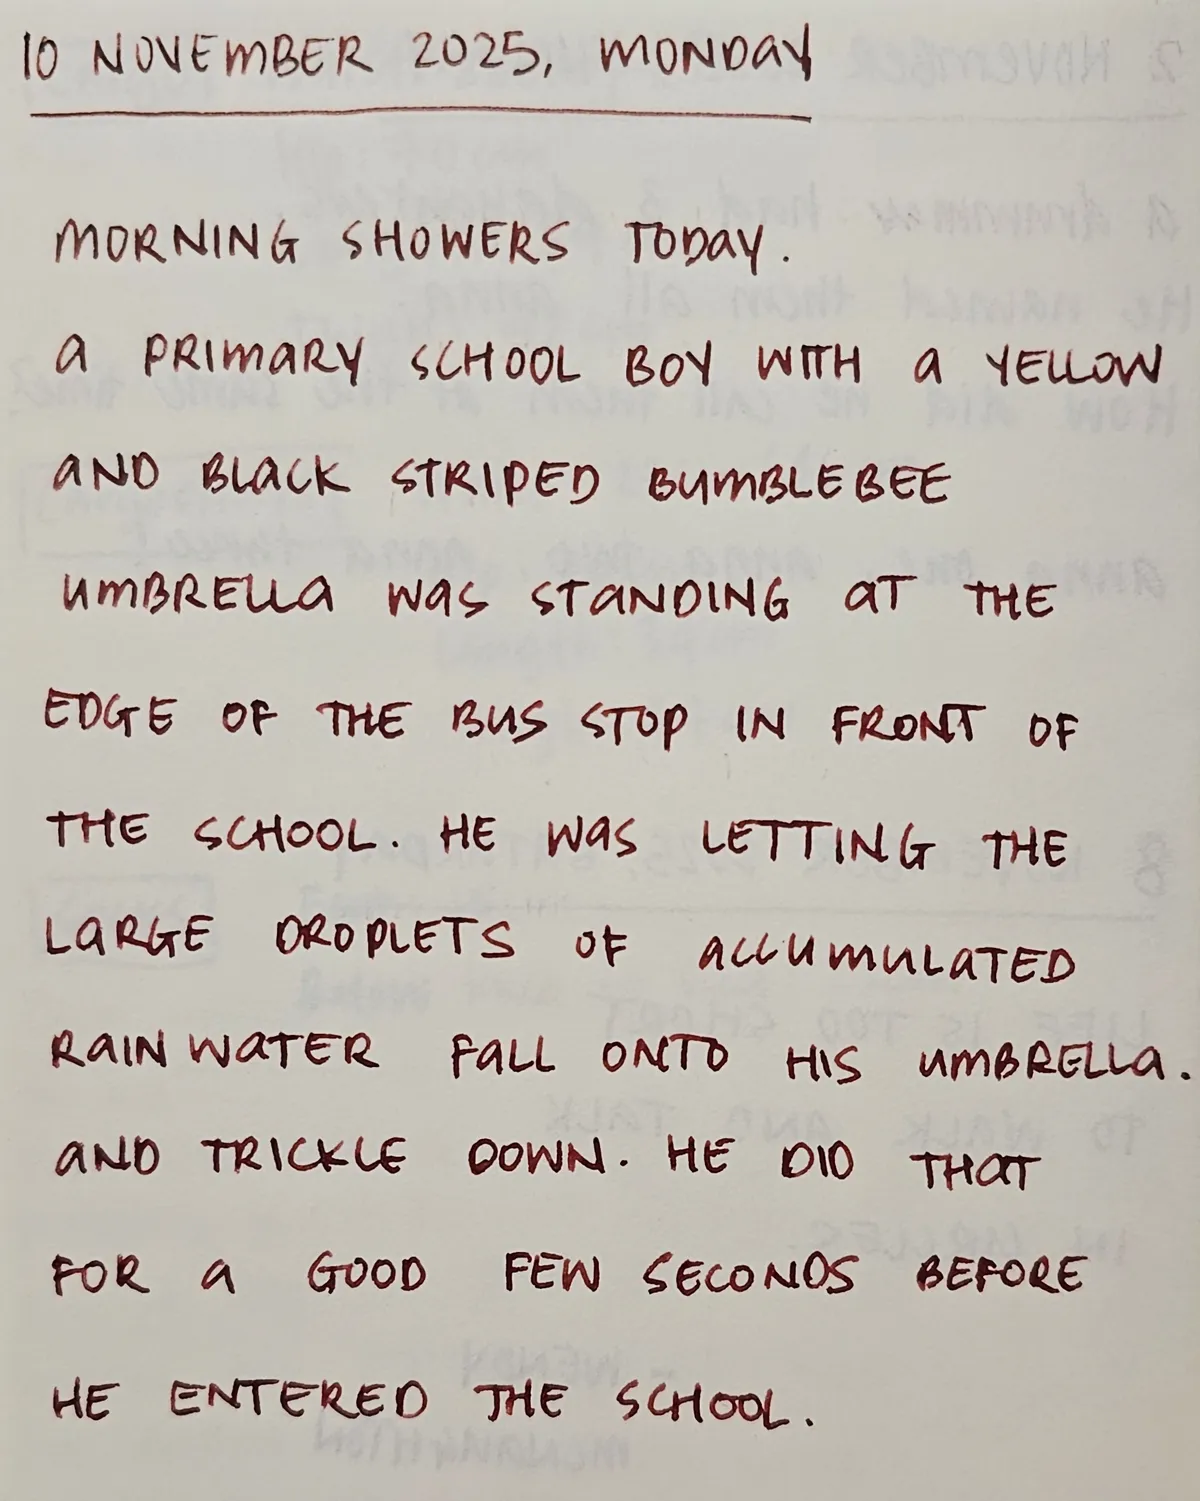 10 NOVEMBER 2025, MONDAY
MORNING SHOWERS TODAY.
A PRIMARY SCHOOL BOY WITH A YELLOW
AND BLACK STRIPED BUMBLEBEE
UMBRELLA WAS STANDING AT THE
EDGE OF THE BUS STOP IN FRONT OF
THE SCHOOL. HE WAS LETTING THE
LARGE DROPLETS OF ACCUMULATED
RAIN WATER FALL ONTO HIS UMBRELLA.
AND TRICKLE DOWN. HE DID THAT
FOR A GOOD FEW SECONDS BEFORE
HE ENTERED THE SCHOOL.